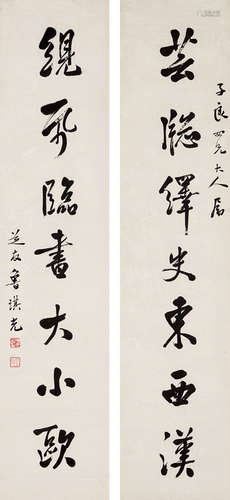 子良四兄大人屬
芸牕繹史東西漢
絸帋臨書大小歐
芝友魯琪光